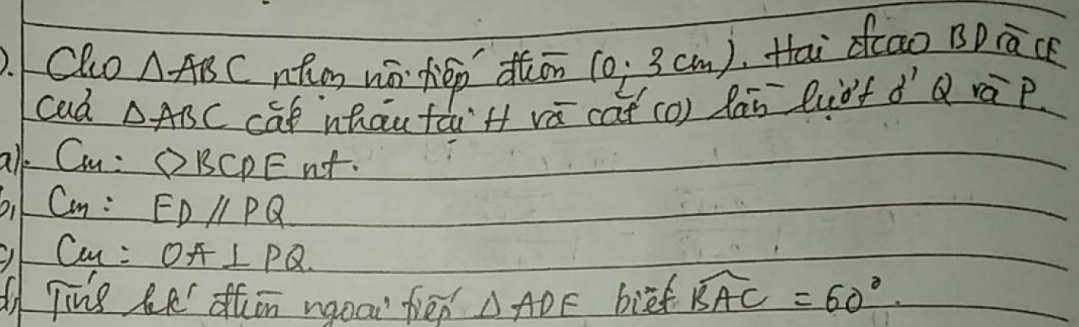 Cho △ABC nhọn nội tiếp đtròn (O; 3cm). Hai đcao BD và CE
của △ABC cắt nhau tại H và cắt (O) lần lượt ở Q và P.
a). Cm: ◇BCDE nt.
b, Cm: ED // PQ
c, Cm: OA ⊥ PQ.
d, Tính bk đtròn ngoại tiếp △ADE biết BAC = 60°.